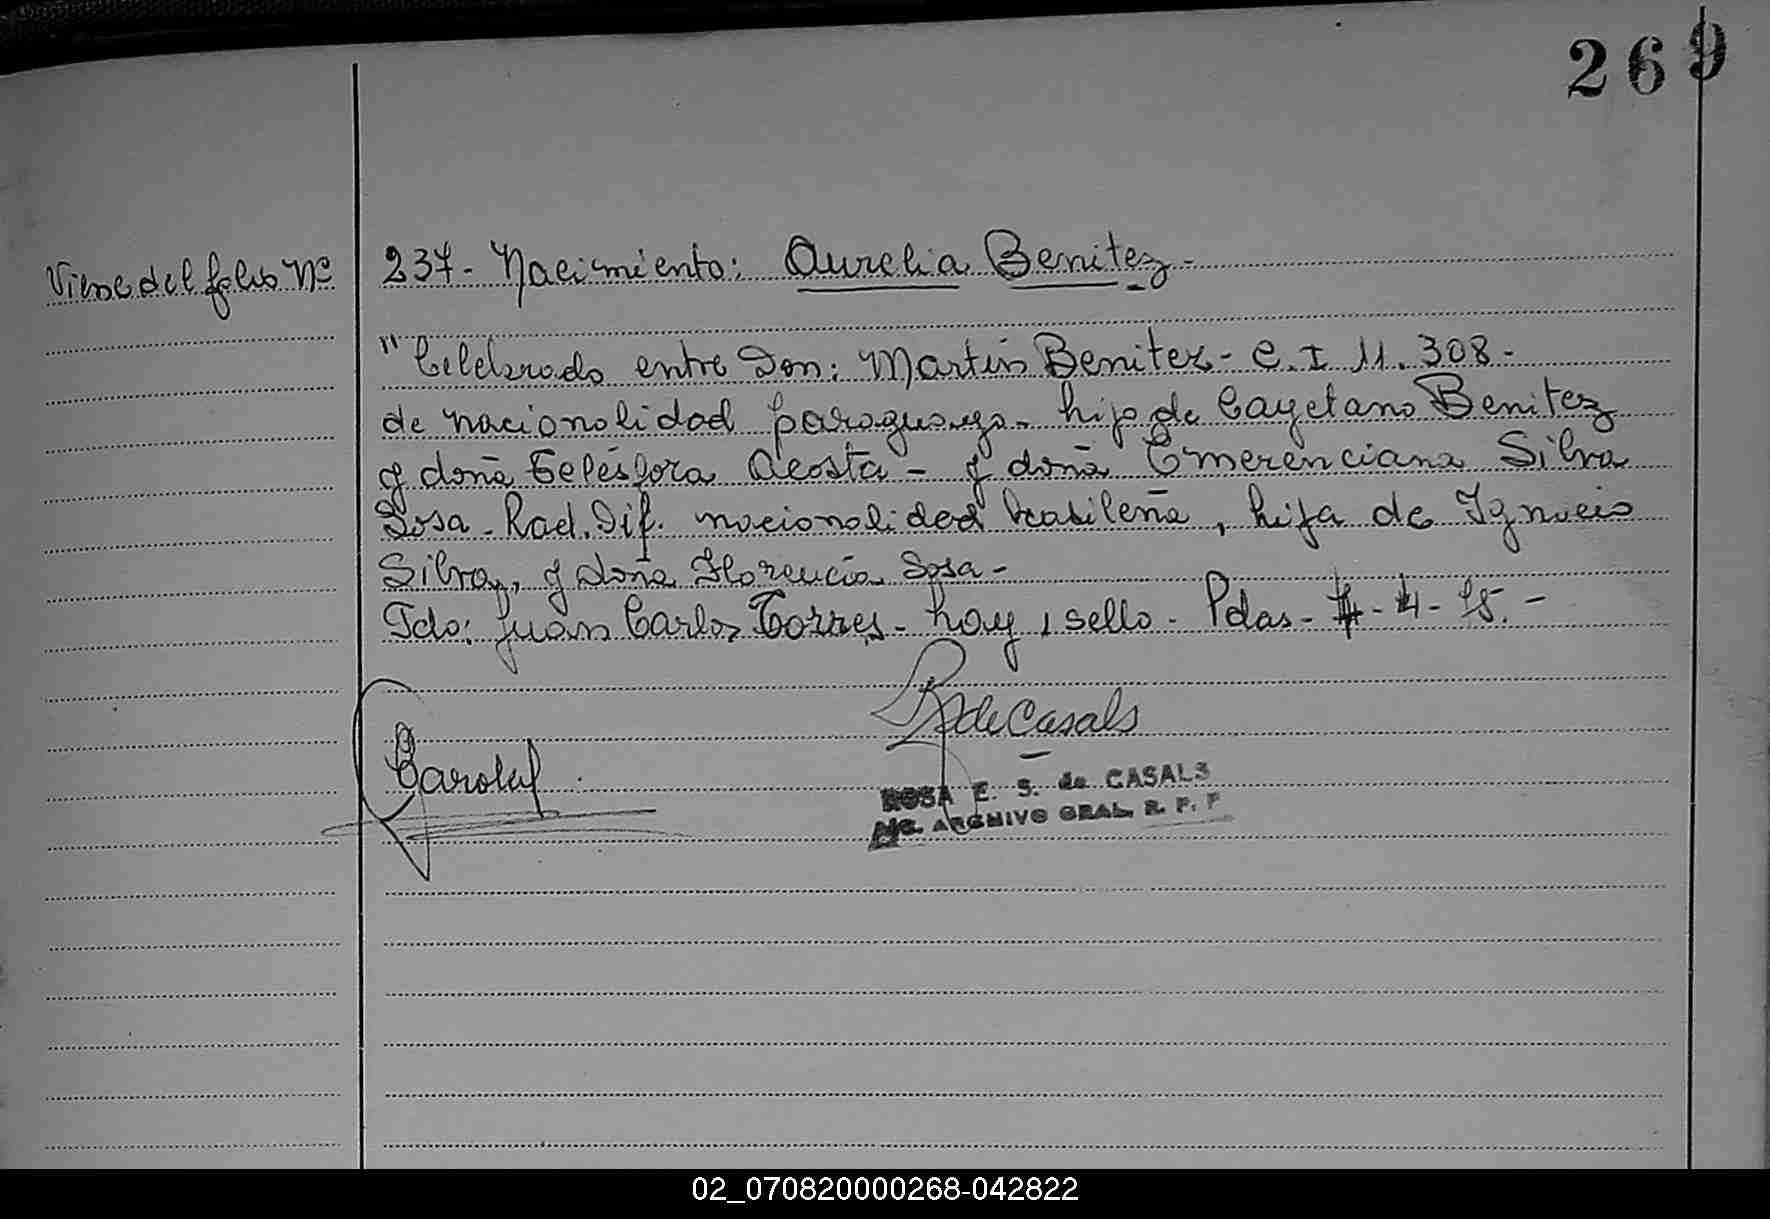 269
Viene del folio Nº 237- Nacimiento: Aurelia Benitez-
"Celebrado entre Don: Martin Benitez- C.I 11.308-
de nacionalidad paraguaya- hijo de Cayetano Benitez
y doña Telésfora Acosta- y doña Emerenciana Silva
Sosa- Rad. Dif. nacionalidad brasileña, hija de Ignacio
Silva, y doña Florencia Sosa-
Fdo: Juan Carlos Torres- hay 1 sello- Pdas- 4-
R de Casals
ROSA E. S. de CASALS
ARCHIVO GRAL. R. P. P
02_070820000268-042822